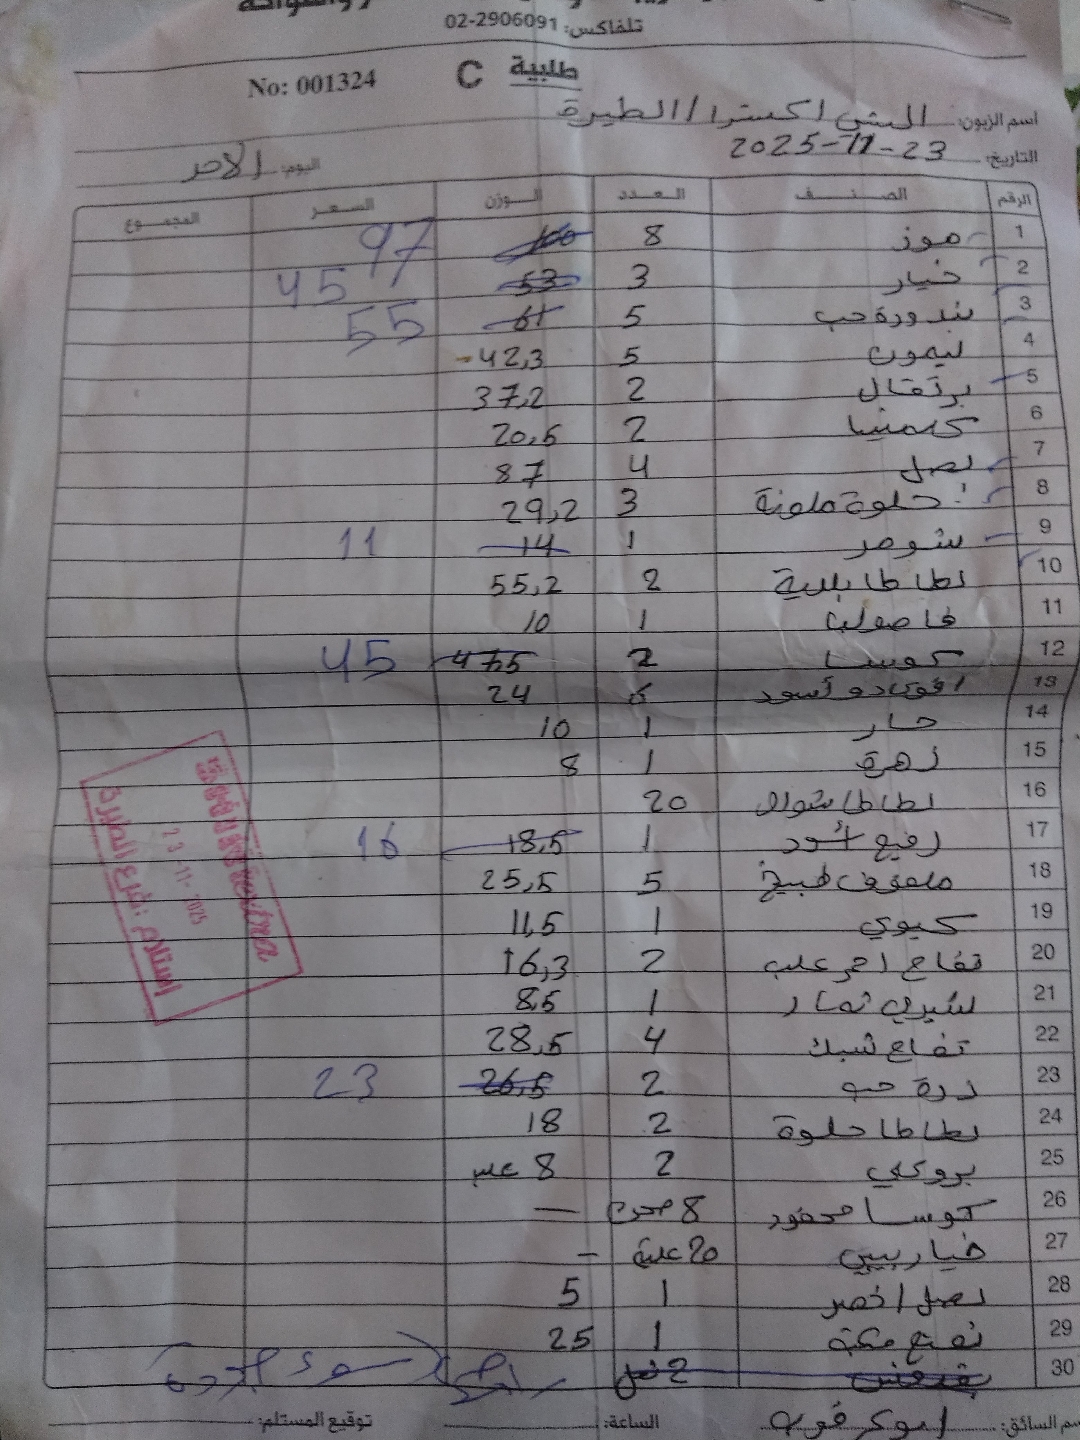 تلفاكس: 02-2906091
طلبية C
No: 001324
اسم الزبون: السني اكسترا / الطيرة
التاريخ: 23-11-2025 اليوم: الاحد
الرقم الصنف العدد الوزن السعر المجموع
1 موز 8 100 97
2 خيار 3 53 45
3 بندورة حب 5 61 55
4 ليمون 5 42,3
5 برتقال 2 37,2
6 كلمنتينا 2 20,5
7 بصل 4 87
8 حلوة ملونة 3 29,2
9 شومر 1 14 11
10 بطاطا بلدية 2 55,2
11 فاصوليا 1 10
12 كوسا 2 47,5 45
13 افوكادو اسود 24
14 حار 1 10
15 زهرة 1 8
16 بطاطا شوال 20
17 رفيع اسود 1 18,5 16
18 ملفوف طبيخ 5 25,5
19 كيوي 1 11,5
20 تفاح احمر علب 2 16,3
21 شيري تمار 1 8,5
22 تفاح شبك 4 28,5
23 ذرة حب 2 26,5 23
24 بطاطا حلوة 2 18
25 بروكلي 2 8
26 كوسا محفور 8 صحن —
27 خيار بيبي 20 علبة —
28 بصل اخضر 1 5
29 نعنع مكبة 1 25
30 بقدونس 2
extra
23-11-2025
استلام: فرع الطيرة
اسم السائق: الساعة: توقيع المستلم: